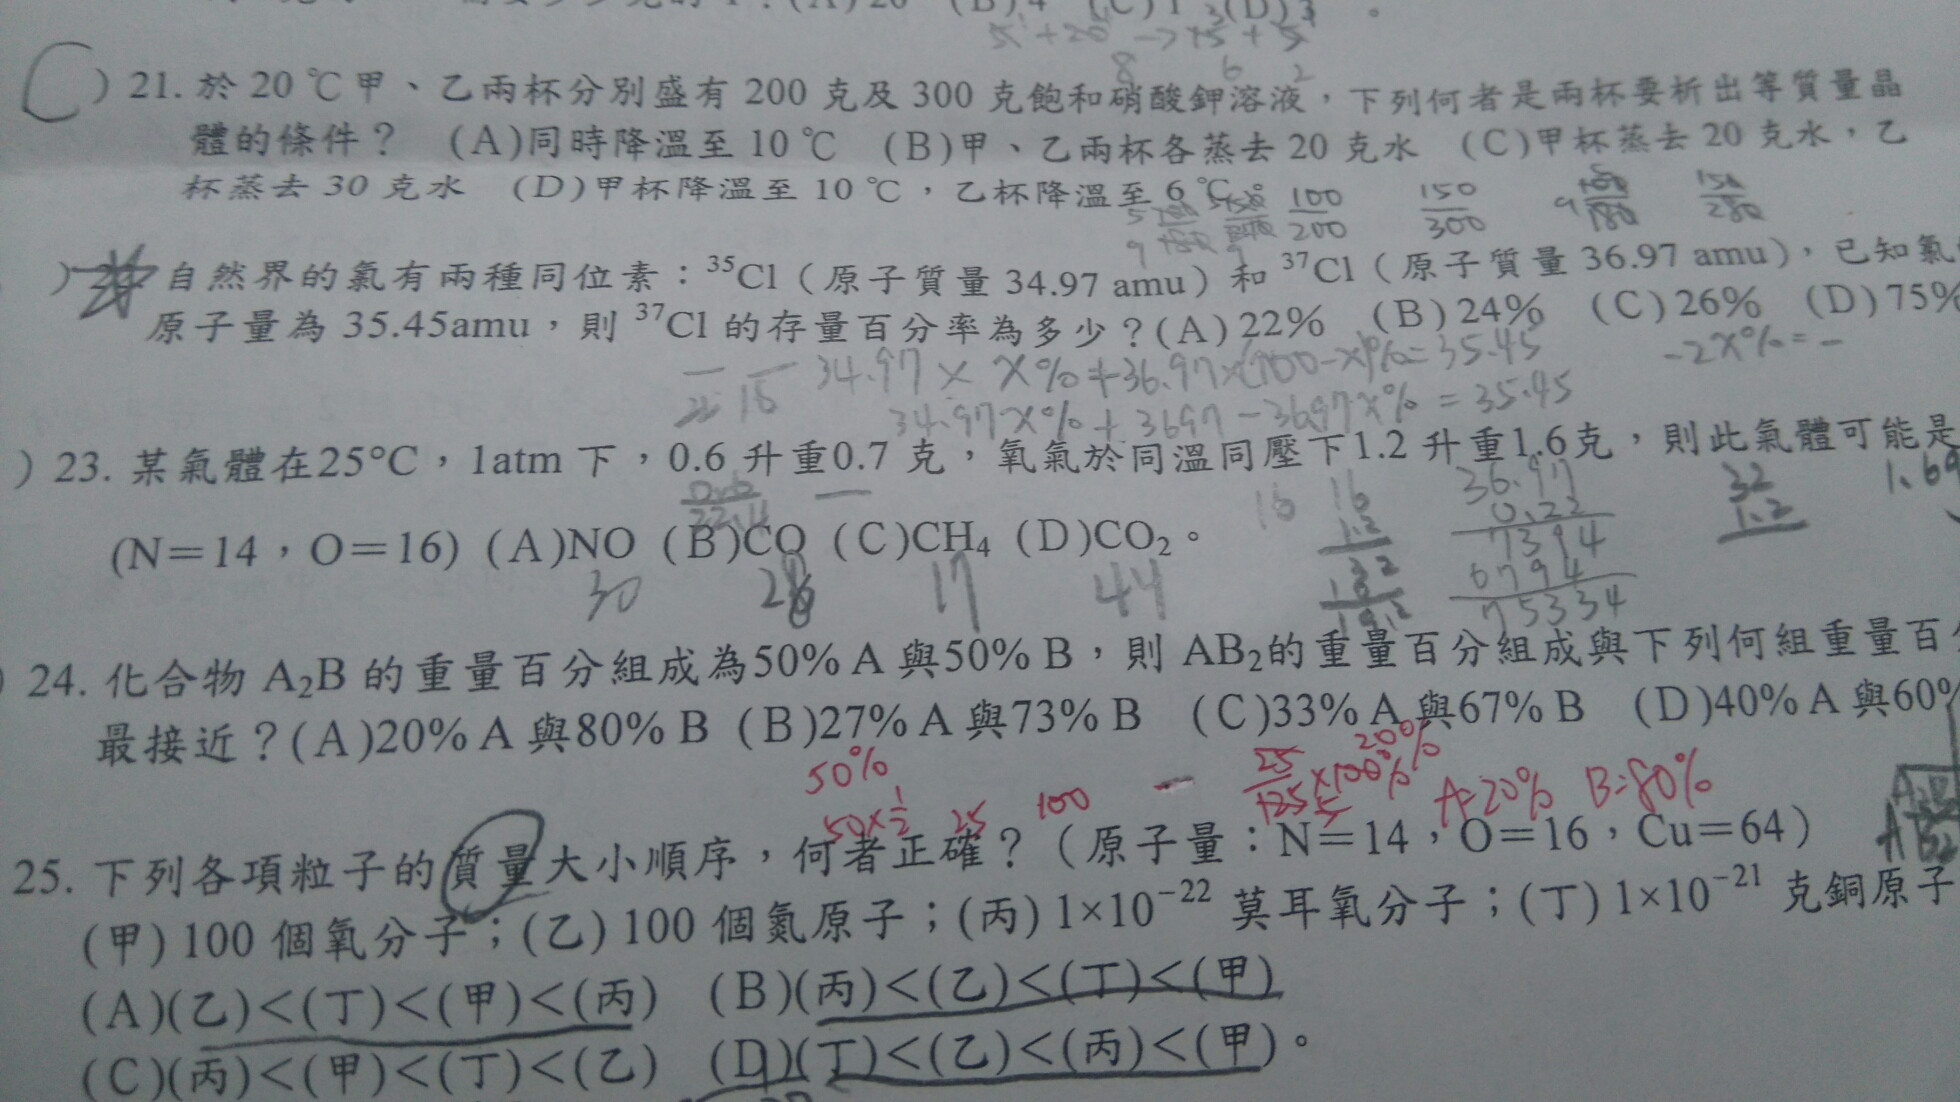 5 + 20 → 15 + 5
8 6 2
C )21. 於 20 ℃甲、乙兩杯分別盛有 200 克及 300 克飽和硝酸鉀溶液，下列何者是兩杯要析出等質量晶
體的條件？ (A)同時降溫至 10 ℃ (B)甲、乙兩杯各蒸去 20 克水 (C)甲杯蒸去 20 克水，乙
杯蒸去 30 克水 (D)甲杯降溫至 10 ℃，乙杯降溫至 6 ℃。
100/200 150/300 9 180 150/280
) 自然界的氯有兩種同位素：³⁵Cl（原子質量 34.97 amu）和 ³⁷Cl（原子質量 36.97 amu），已知氯
原子量為 35.45amu，則 ³⁷Cl 的存量百分率為多少？(A)22% (B)24% (C)26% (D)75%
34.97 × X% + 36.97×(100-X)% = 35.45 -2X% = -
16 34.97X% + 3697 - 36.97X% = 35.45
)23. 某氣體在25°C，1atm 下，0.6 升重0.7 克，氧氣於同溫同壓下1.2 升重1.6克，則此氣體可能是
0.6/22.4 16 16 1.2 36.97 0.22 32 1.2 1.69
(N=14，O=16) (A)NO (B)CO (C)CH₄ (D)CO₂。
30 28 17 44 32 7394 6794 75334
)24. 化合物 A₂B 的重量百分組成為50% A 與50% B，則 AB₂的重量百分組成與下列何組重量百
最接近？(A)20% A 與80% B (B)27% A 與73% B (C)33% A 與67% B (D)40% A 與60%
50% 50×1/2 25 100 25/125×100% 20% A=20% B=80%
25. 下列各項粒子的質量大小順序，何者正確？（原子量：N=14，O=16，Cu=64）
(甲) 100 個氧分子；(乙) 100 個氮原子；(丙) 1×10⁻²² 莫耳氧分子；(丁) 1×10⁻²¹ 克銅原子
(A)(乙)<(丁)<(甲)<(丙) (B)(丙)<(乙)<(丁)<(甲)
(C)(丙)<(甲)<(丁)<(乙) (D)(丁)<(乙)<(丙)<(甲)。